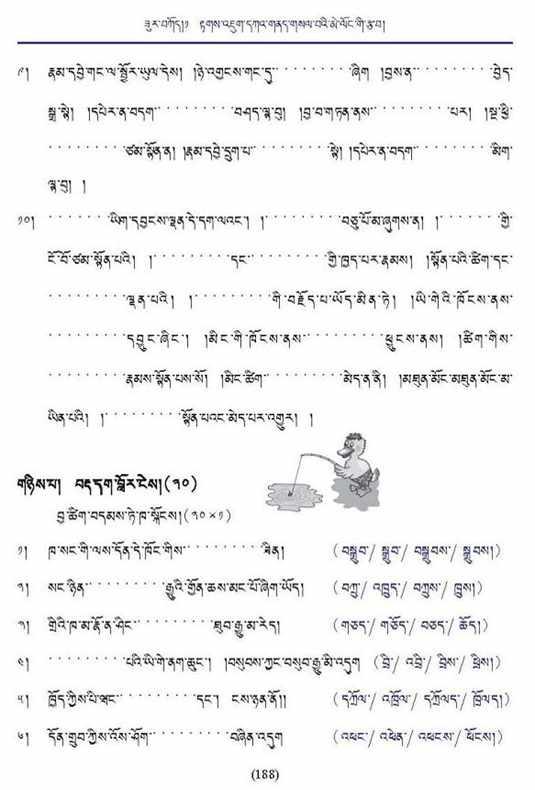 ཟུར་བཀོད།༡ རྟགས་འཇུག་དཀའ་གནད་གསལ་བའི་མེ་ལོང་གི་རྩ་བ།
༩། རྣམ་དབྱེ་གང་ལ་སྦྱོར་ཡུལ་དེས། །ཉེ་འགྱངས་གང་དུ་․․․․․․․․․ཞིག །བྱས་ན་․․․․․․․․․བྱེད་
སྒྲ་སྟེ། །དཔེར་ན་བདག་․․․․․․․․․བཤད་ལྟ་བུ། །བྱ་བ་གཏན་ནས་․․․․․․․․․པར། །སྔ་ཕྱི་
․․․․․․․․․ཙམ་སྟོན་ན། །རྣམ་དབྱེ་དྲུག་པ་․․․․․․․․․སྟེ། །དཔེར་ན་བདག་․․․․․․․․․མིག་
ལྟ་བུ། །
༡༠། ․․․․․․․ཡིག་དབྱངས་ལྡན་དེ་དག་ལའང་། །․․․․․․․․․བཅུ་པོ་མ་ཞུགས་ན། །․․․․․․․གྱི་
ངོ་བོ་ཙམ་སྟོན་པའི། །․․․․․․․․․དང་․․․․․․․․․གྱི་ཁྱད་པར་རྣམས། །སྟོན་པའི་ཚིག་དང་
․․․․․․․․․ལྡན་པའི། །․․․․․․․․․གི་བརྗོད་པ་ཡོད་མིན་ཏེ། །ཡི་གེའི་ཁོངས་ནས་
․․․․․․․․․དབྱུང་ཞིང་། །མིང་གི་ཁོངས་ནས་․․․․․․․․․ཕྱུངས་ནས། །ཚིག་གིས་
․․․․․․․․․རྣམས་སྟོན་པས་སོ། །མིང་ཚིག་․․․․․․․․․མེད་ན་ནི། །མཐུན་མོང་མཐུན་མོང་མ་
ཡིན་པའི། །․․․․․․․․․སྟོན་པའང་མེད་པར་འགྱུར། །
གཉིས་པ། བརྡ་དག་བློར་ངེས། (༢༠)
བྱ་ཚིག་བདམས་ཏེ་ཁ་སྐོངས། (༢༠×༡)
༡། ཁ་སང་གི་ལས་དོན་དེ་ཁོང་གིས་․․․․․․․․․ཟིན། (བསྒྲུབ་/ སྒྲུབ་/ བསྒྲུབས་/ སྒྲུབས།)
༢། སང་ཉིན་․․․․․․․․․རྒྱུའི་གྱོན་ཆས་མང་པོ་ཞིག་ཡོད། (བཀྲུ་/ འཁྲུད་/ བཀྲུས་/ ཁྲུས།)
༣། གྲིའི་ཁ་མ་རྣོ་ན་ཤིང་․․․․․․․․․ཐུབ་རྒྱུ་མ་རེད། (གཅད་/ གཅོད་/ བཅད་/ ཆོད།)
༤། ․․․․․․․․․པའི་ཡི་གེ་ནག་ཆུང་། །བསུབས་ཀྱང་བསུབ་རྒྱུ་མི་འདུག (བྲི་/ འབྲི་/ བྲིས་/ ཕྲིས།)
༥། ཁྱོད་ཀྱིས་པི་ཝང་་․․․․․․․․․དང་། ངས་ཉན་ནོ།། (དཀྲོལ་/ འཁྲོལ་/ དཀྲོལད་/ ཁྲོལད།)
༦། དོན་གྲུབ་ཀྱིས་འོས་ཤོག་․․․․․․․․․བཞིན་འདུག (འཕང་/ འཕེན་/ འཕངས་/ ཕོངས།)
(188)